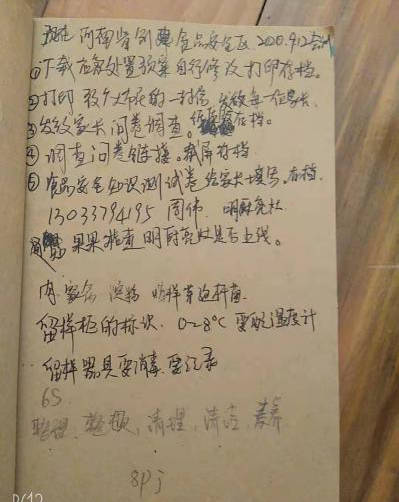 河南省创建食品安全区 2020.9.12
①下载应急处置预案自行修改打印存档。
②打印致家长的一封信 发放每一位家长
③发放家长问卷调查。 存档。
④调查问卷链接。截屏存档
⑤食品安全知识测试卷 给家长填写。存档
13033794195 周伟 明厨亮灶
果果检查明厨亮灶是否上线。
肉
留样柜的标识 0-8℃ 要贴温度计
留样器具要消毒 要记录
6S
整理、整顿、清理、清洁、素养